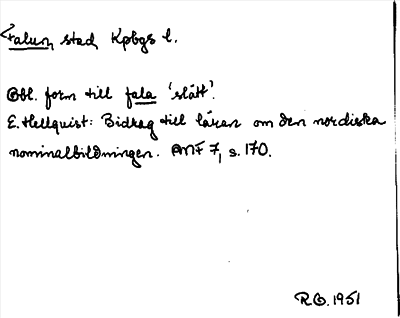 Falun, stad Kpbgs l.
Obl. form till fala 'slätt'.
E. Hellquist: Bidrag till läran om den nordiska
nominalbildningen. ANF 7, s. 170.
R.G. 1951